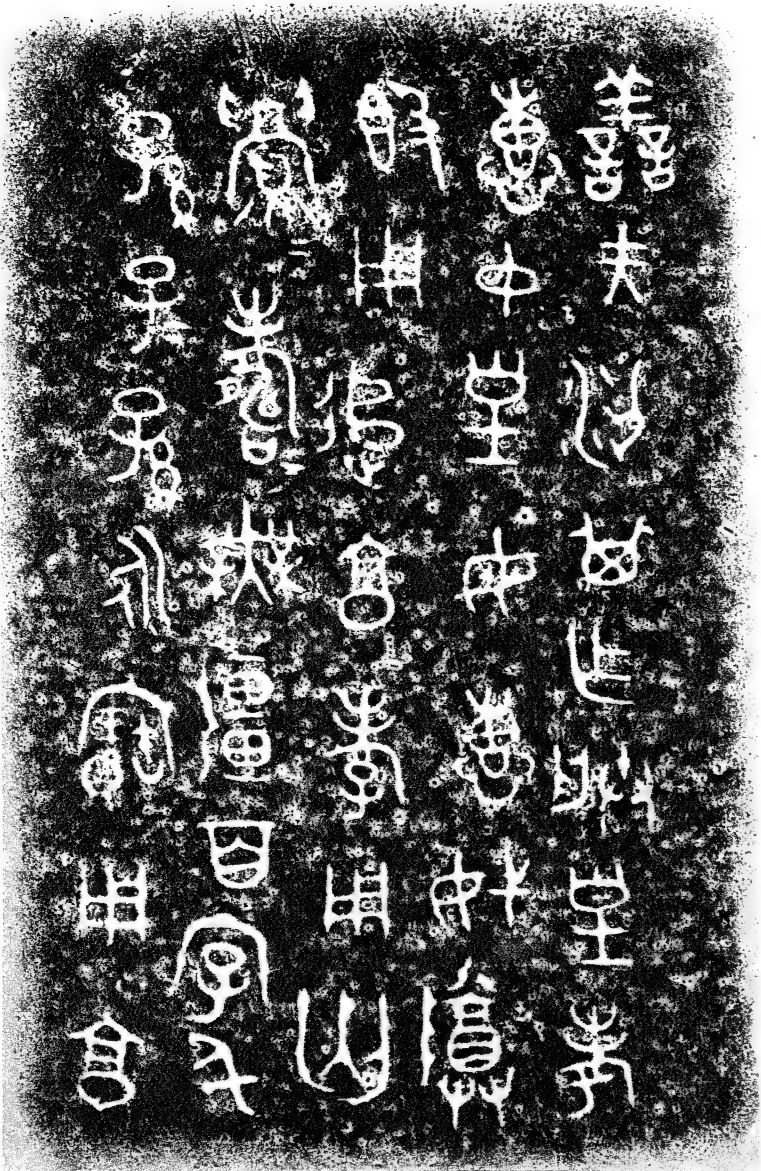 善夫梁其乍朕皇考
惠中皇母惠妣尊
𣪘用追亯孝用匄
眉=壽=無疆百字千
孫子=孫=永寶用亯